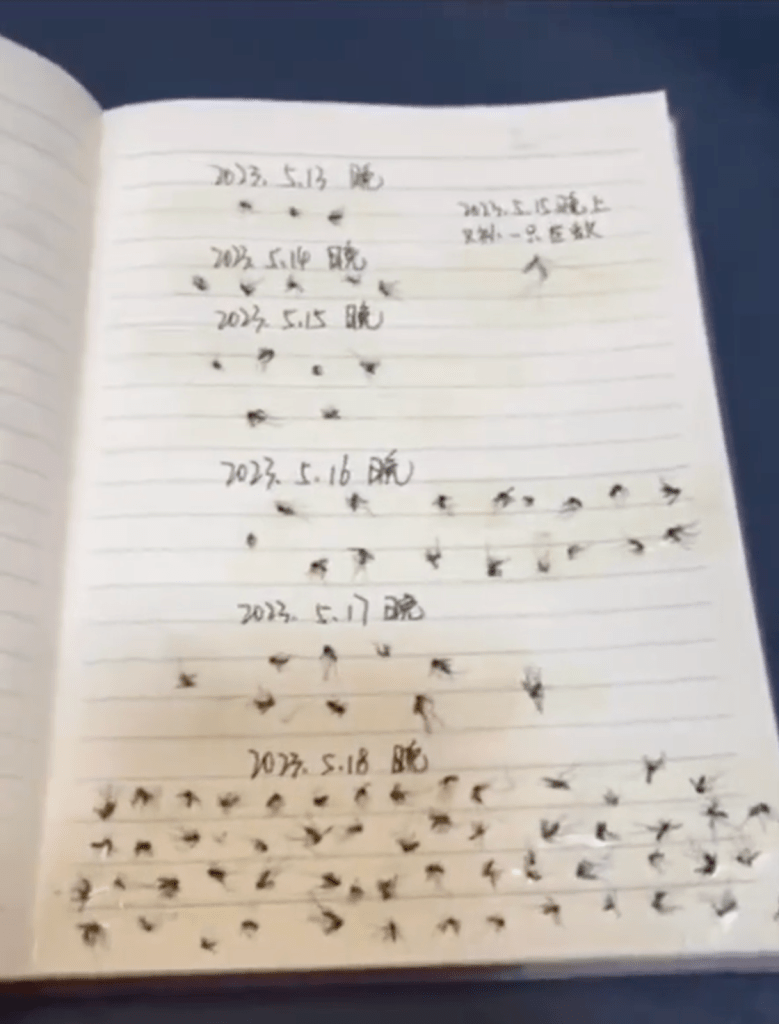 2023. 5.13 晚
2023. 5.15 晚上
只剩一只在飞
2023. 5.14 晚
2023. 5.15 晚
2023. 5.16 晚
2023. 5.17 晚
2023. 5.18 晚